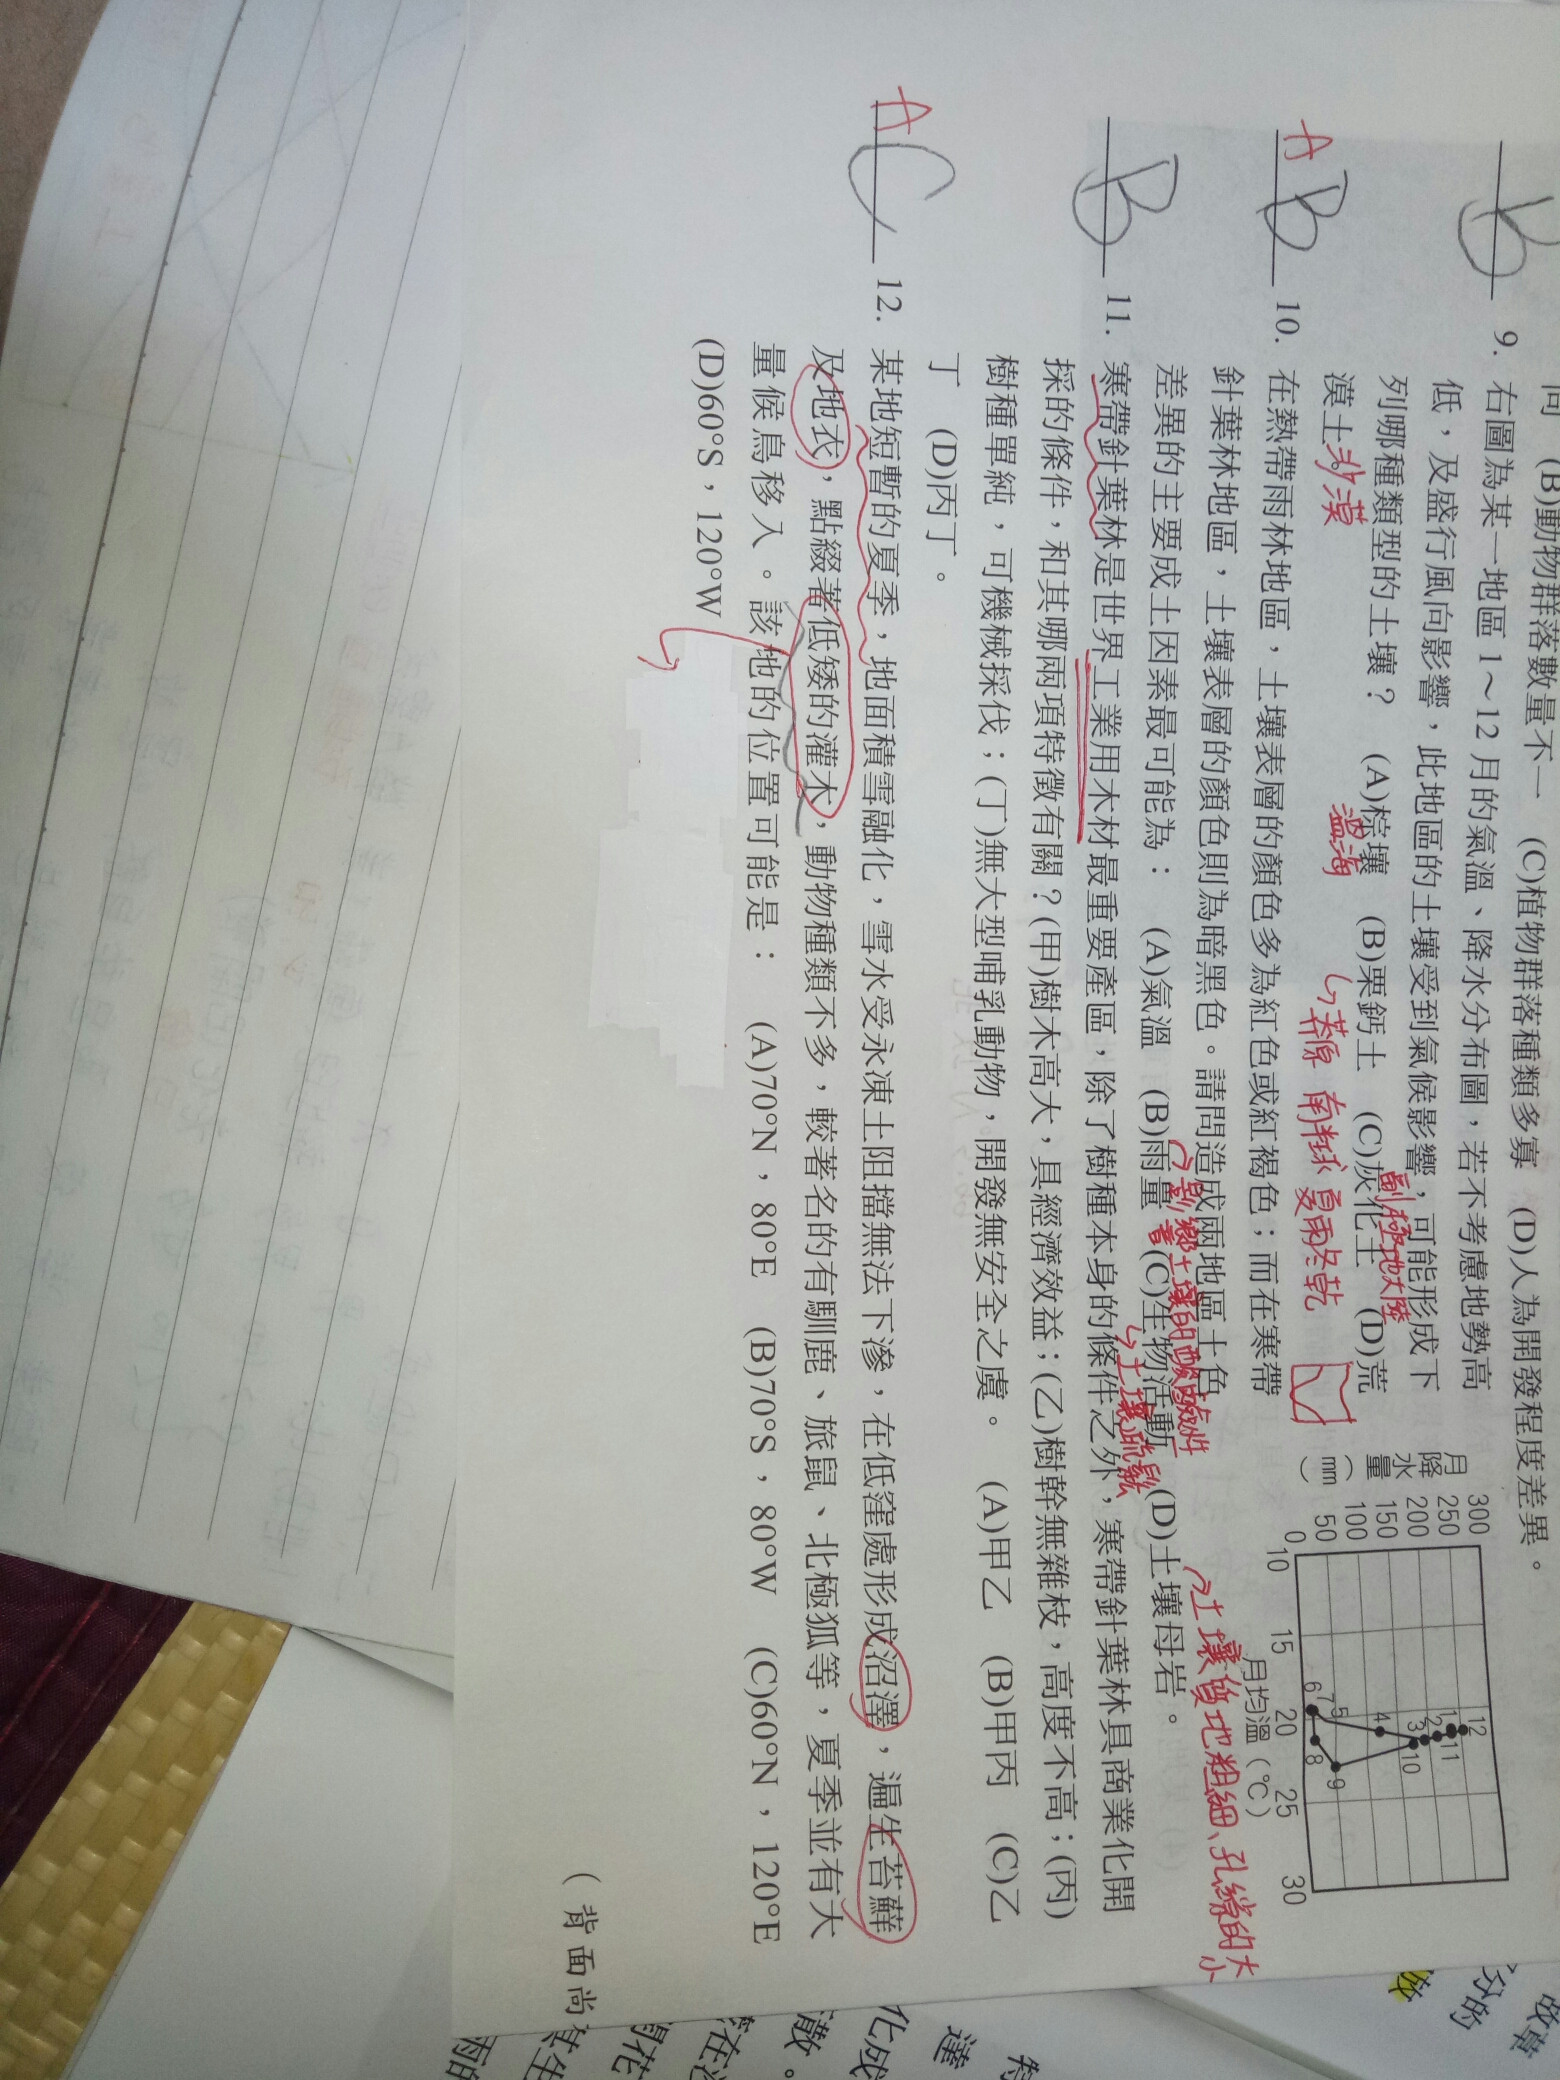 同 (B)動物群落數量不一 (C)植物群落種類多寡 (D)人為開發程度差異。
B 9. 右圖為某一地區1～12月的氣溫、降水分布圖，若不考慮地勢高
低，及盛行風向影響，此地區的土壤受到氣候影響，可能形成下
列哪種類型的土壤？ (A)棕壤 (B)栗鈣土 (C)灰化土 (D)荒
漠土
沙漠
溫海
莽原 南半球 夏雨冬乾
副極地大陸
月降水量(mm)
300
250
200
150
100
50
0
10 15 20 25 30
月均溫(℃)
12
1
11
2
3
10
4
5
7
6
8
9
A B 10. 在熱帶雨林地區，土壤表層的顏色多為紅色或紅褐色；而在寒帶
針葉林地區，土壤表層的顏色則為暗黑色。請問造成兩地區土色
差異的主要成土因素最可能為： (A)氣溫 (B)雨量 (C)生物活動 (D)土壤母岩。
影響土壤的酸鹼性
土壤疏鬆
土壤質地粗細、孔隙的大小
B 11. 寒帶針葉林是世界工業用木材最重要產區，除了樹種本身的條件之外，寒帶針葉林具商業化開
採的條件，和其哪兩項特徵有關？(甲)樹木高大，具經濟效益；(乙)樹幹無雜枝，高度不高；(丙)
樹種單純，可機械採伐；(丁)無大型哺乳動物，開發無安全之虞。 (A)甲乙 (B)甲丙 (C)乙
丁 (D)丙丁。
A C 12. 某地短暫的夏季，地面積雪融化，雪水受永凍土阻擋無法下滲，在低窪處形成沼澤，遍生苔蘚
及地衣，點綴著低矮的灌木，動物種類不多，較著名的有馴鹿、旅鼠、北極狐等，夏季並有大
量候鳥移入。該地的位置可能是： (A)70°N，80°E (B)70°S，80°W (C)60°N，120°E
(D)60°S，120°W
(背面尚